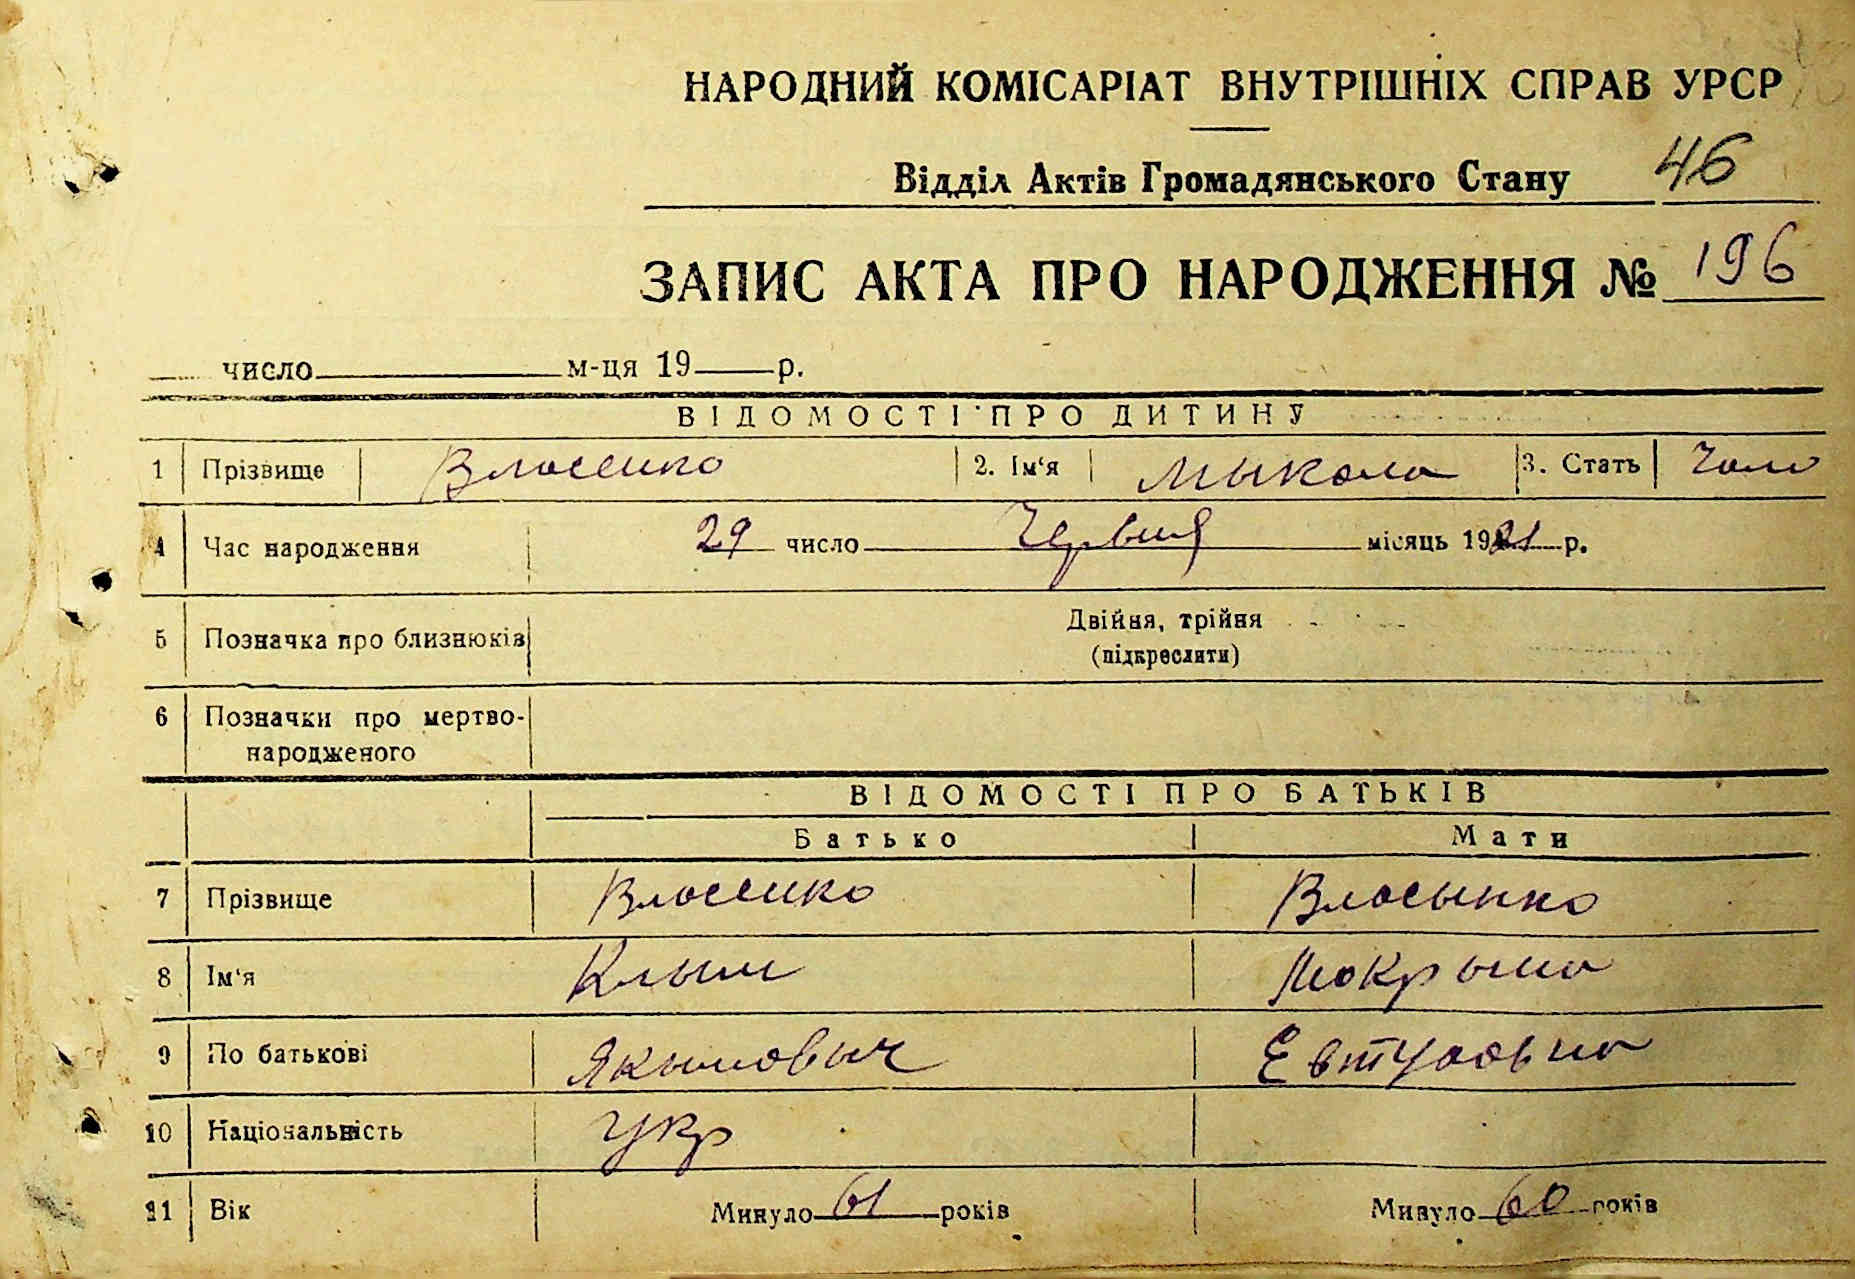 НАРОДНИЙ КОМІСАРІАТ ВНУТРІШНІХ СПРАВ УРСР
Відділ Актів Громадянського Стану 46
ЗАПИС АКТА ПРО НАРОДЖЕННЯ № 196
число м-ця 19 р.
ВІДОМОСТІ ПРО ДИТИНУ
1 Прізвище Власенко 2. Ім'я Мыкола 3. Стать Чоло
4 Час народження 29 число Червня місяць 19 21 р.
5 Позначка про близнюків Двійня, трійня
(підкреслити)
6 Позначки про мертво-
народженого
ВІДОМОСТІ ПРО БАТЬКІВ
Батько Мати
7 Прізвище Власенко Власынко
8 Ім'я Клым Мокрына
9 По батькові Якымовыч
10 Національність Укр
11 Вік Минуло 61 років Минуло 60 років